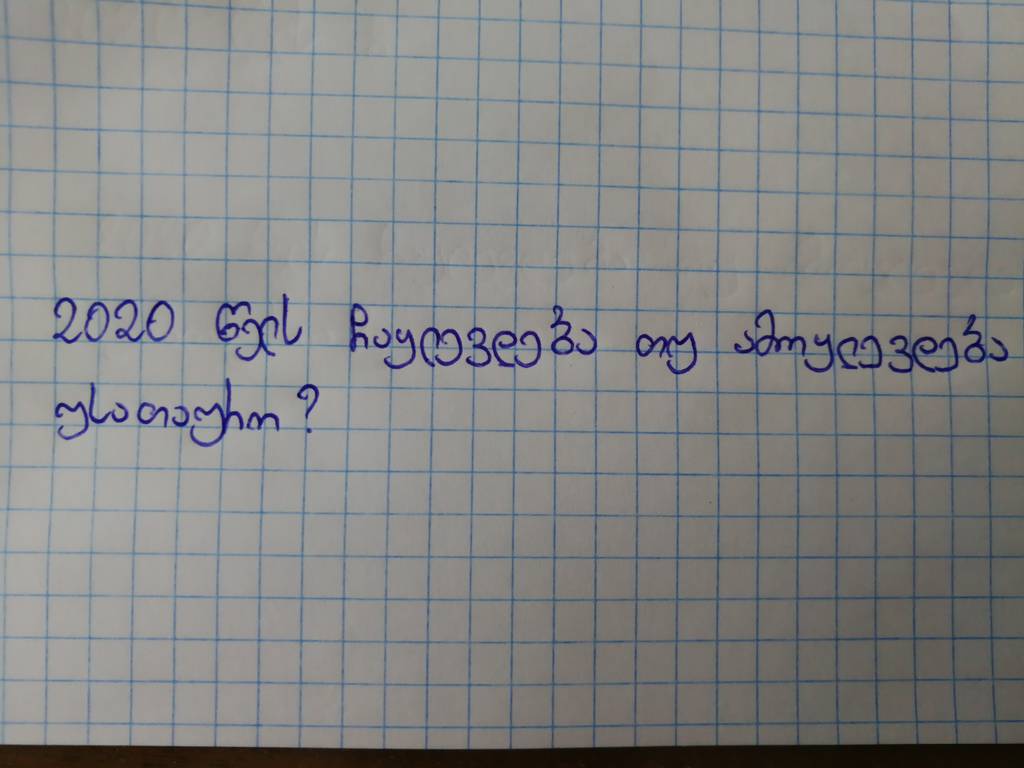 2020 წელს ჩაყლევლება თუ ამოყლევლება
უსათაურო?